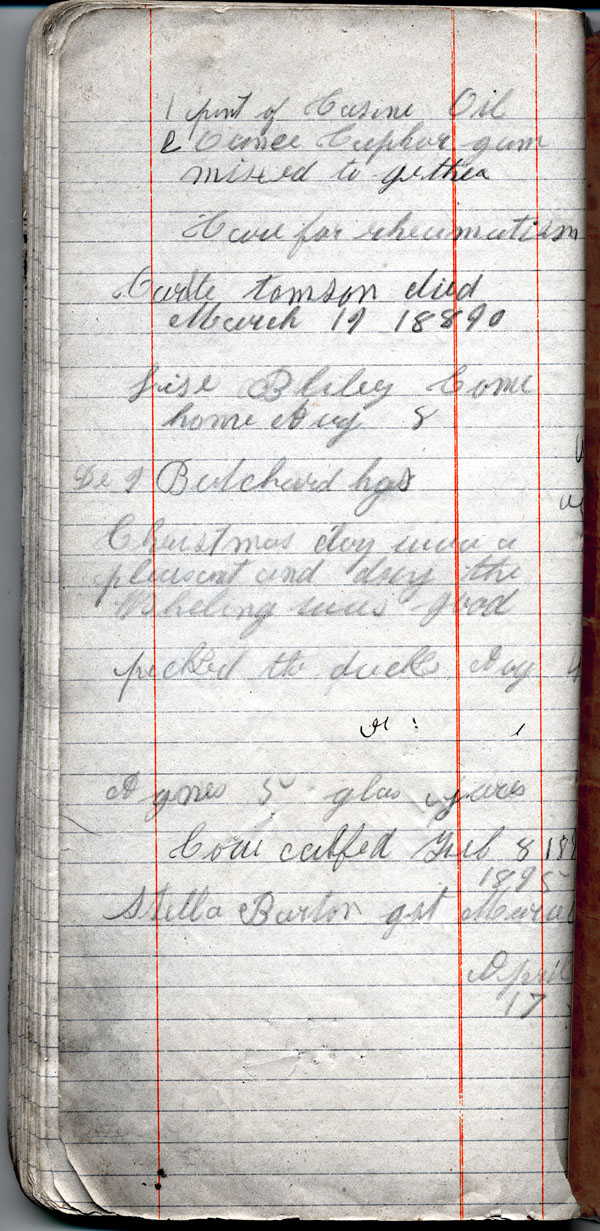 1 pint of Casine Oil
2 Ounce Camphor gum
mixed to gethea
Kure for rheumatism
tomson died
March 19 18890
Lise Bliley Come
home Aug 8
De 9 Butchard hgs
Christmas day was a
pleasant and day the
Wheling was good
picked the ducks Aug 4
Agnes 5 glas gares
Cow calfed Feb 8 189
1895
Stella Barton got Marred
April
17